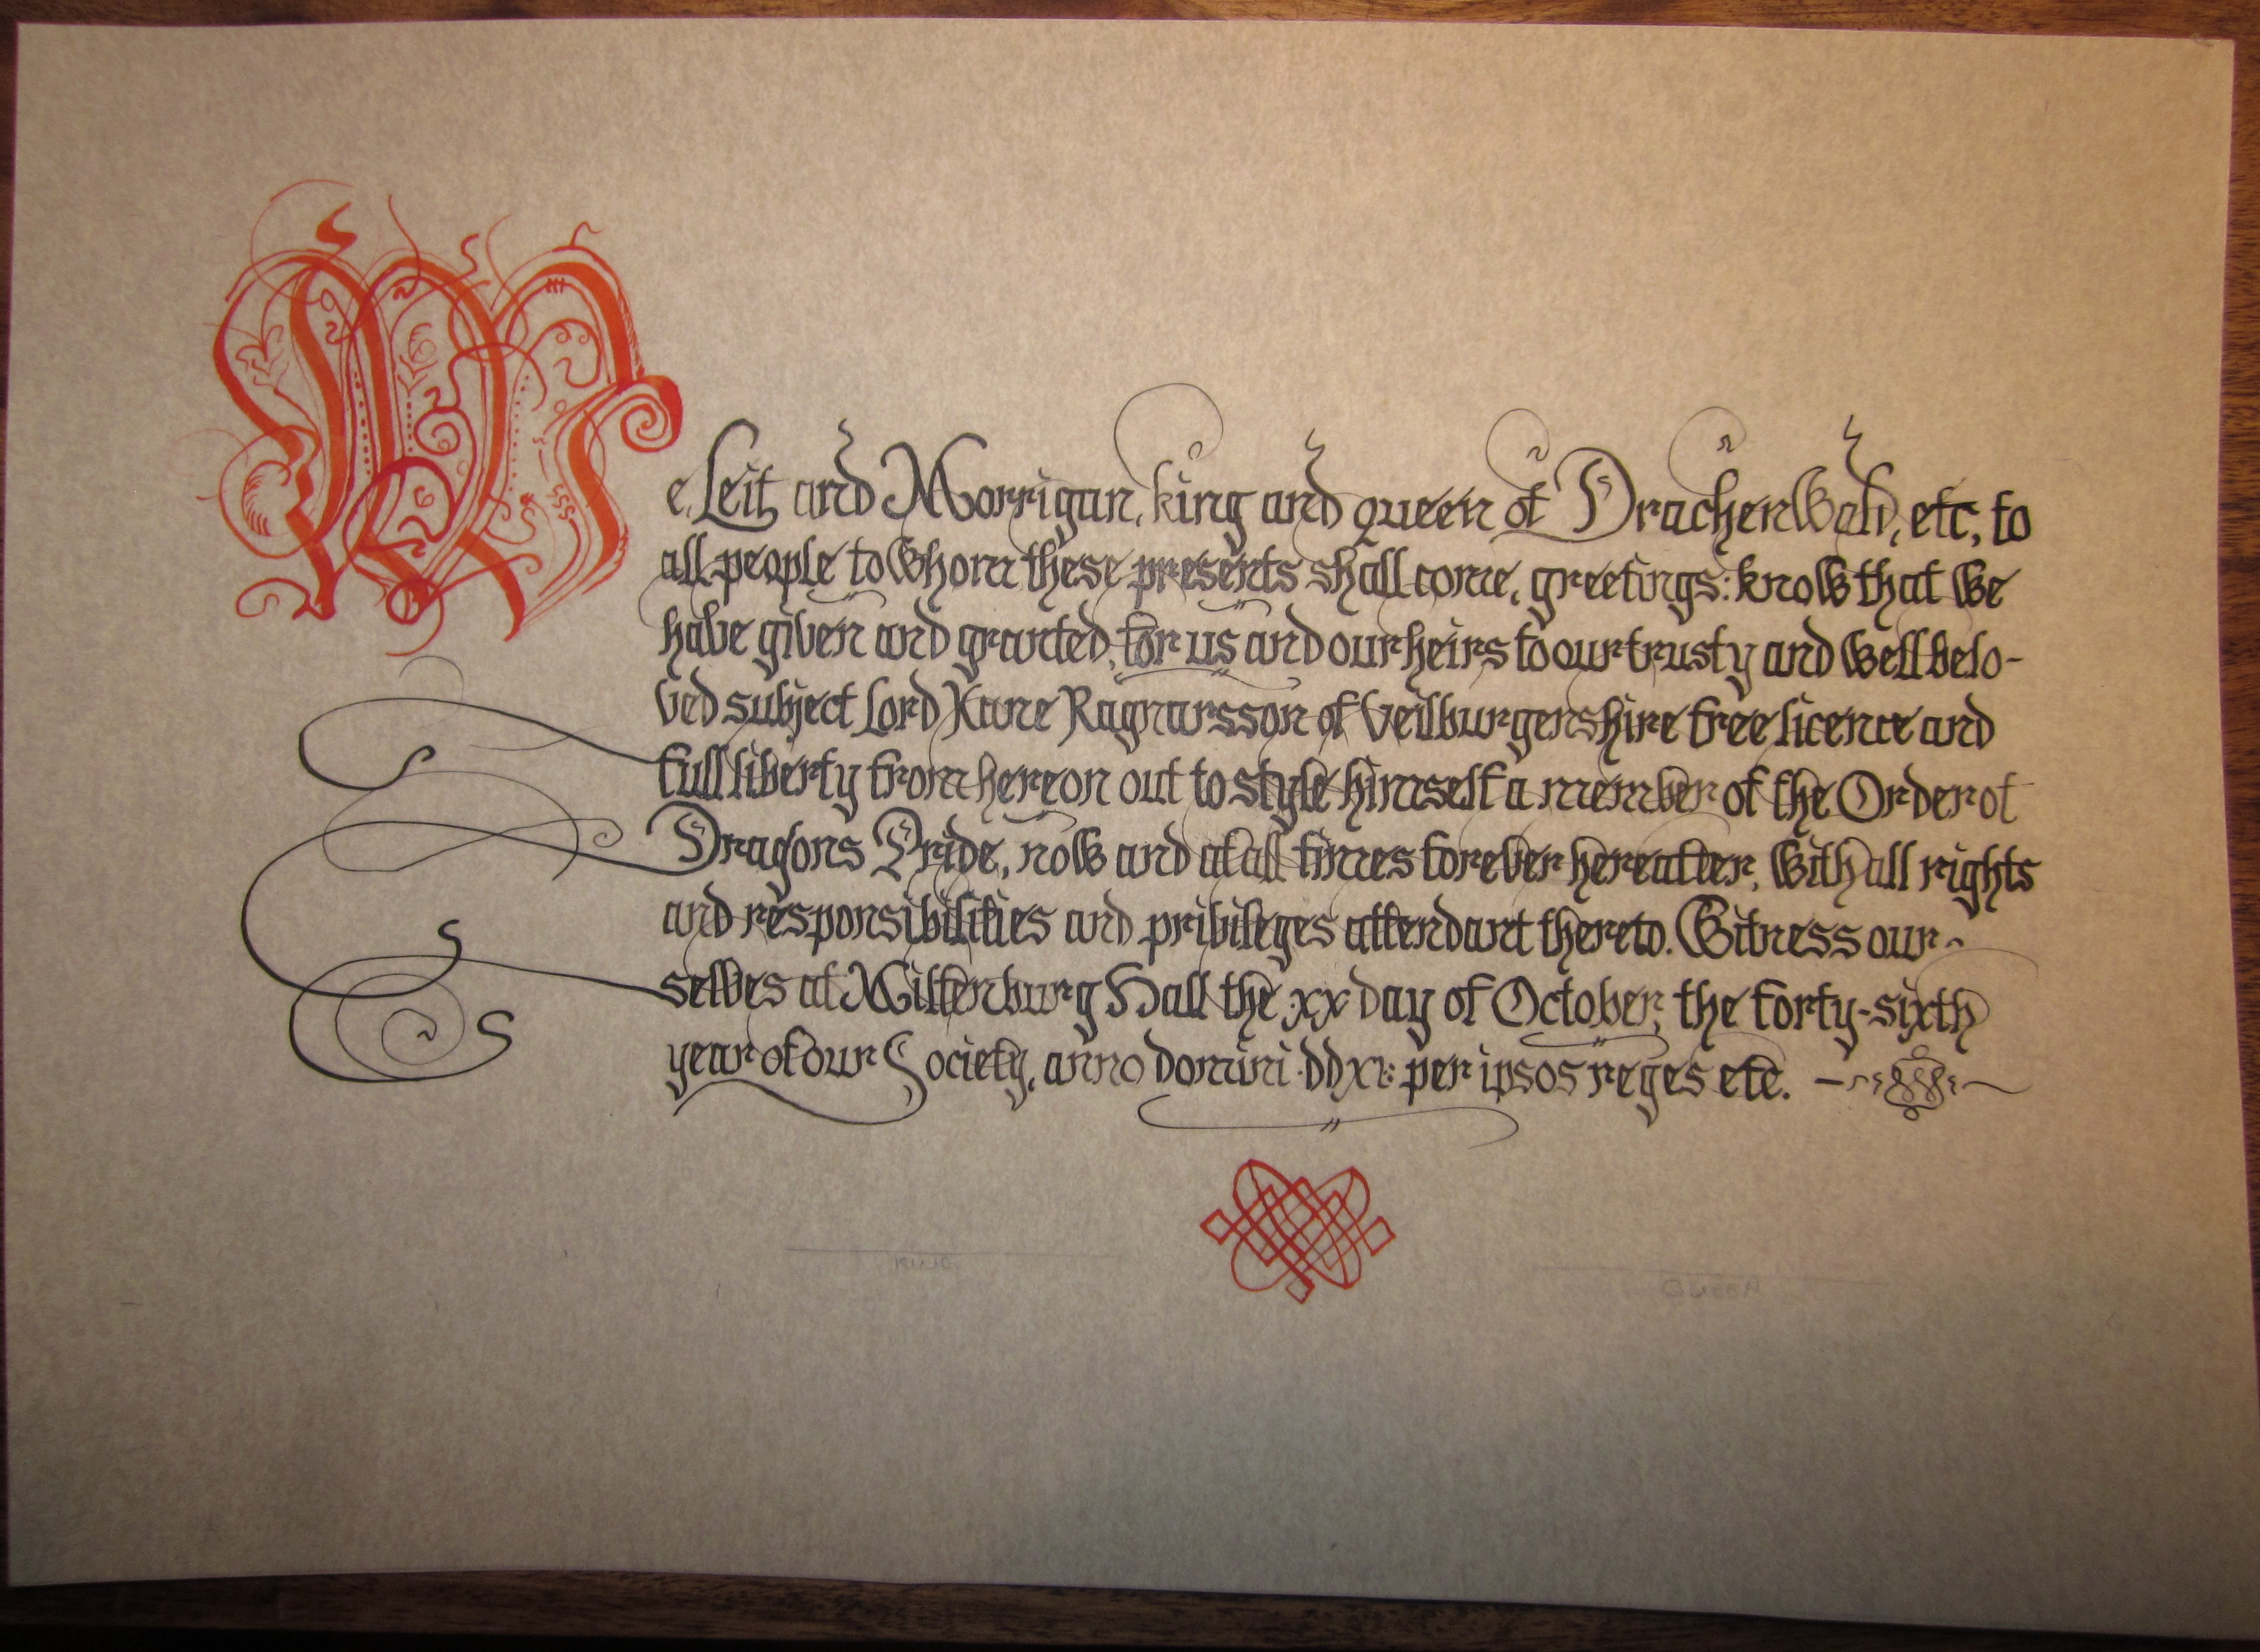 We, Leif and Morrigan, king and queen of Drachenwald, etc, to
all people to whom these presents shall come, greetings: know that we
have given and granted, for us and our heirs to our trusty and well belo-
ved subject Lord Kane Ragnarsson of Veilburgenshire free licence and
full liberty from hereon out to style himself a member of the Order of
Dragons Pride, now and at all times forever hereafter, with all rights
and responsibilities and privileges attendant thereto. Witness our-
selves at Wiltenburg Hall the xx day of October, the forty-sixth
year of our Society, anno domini per ipsos reges etc.